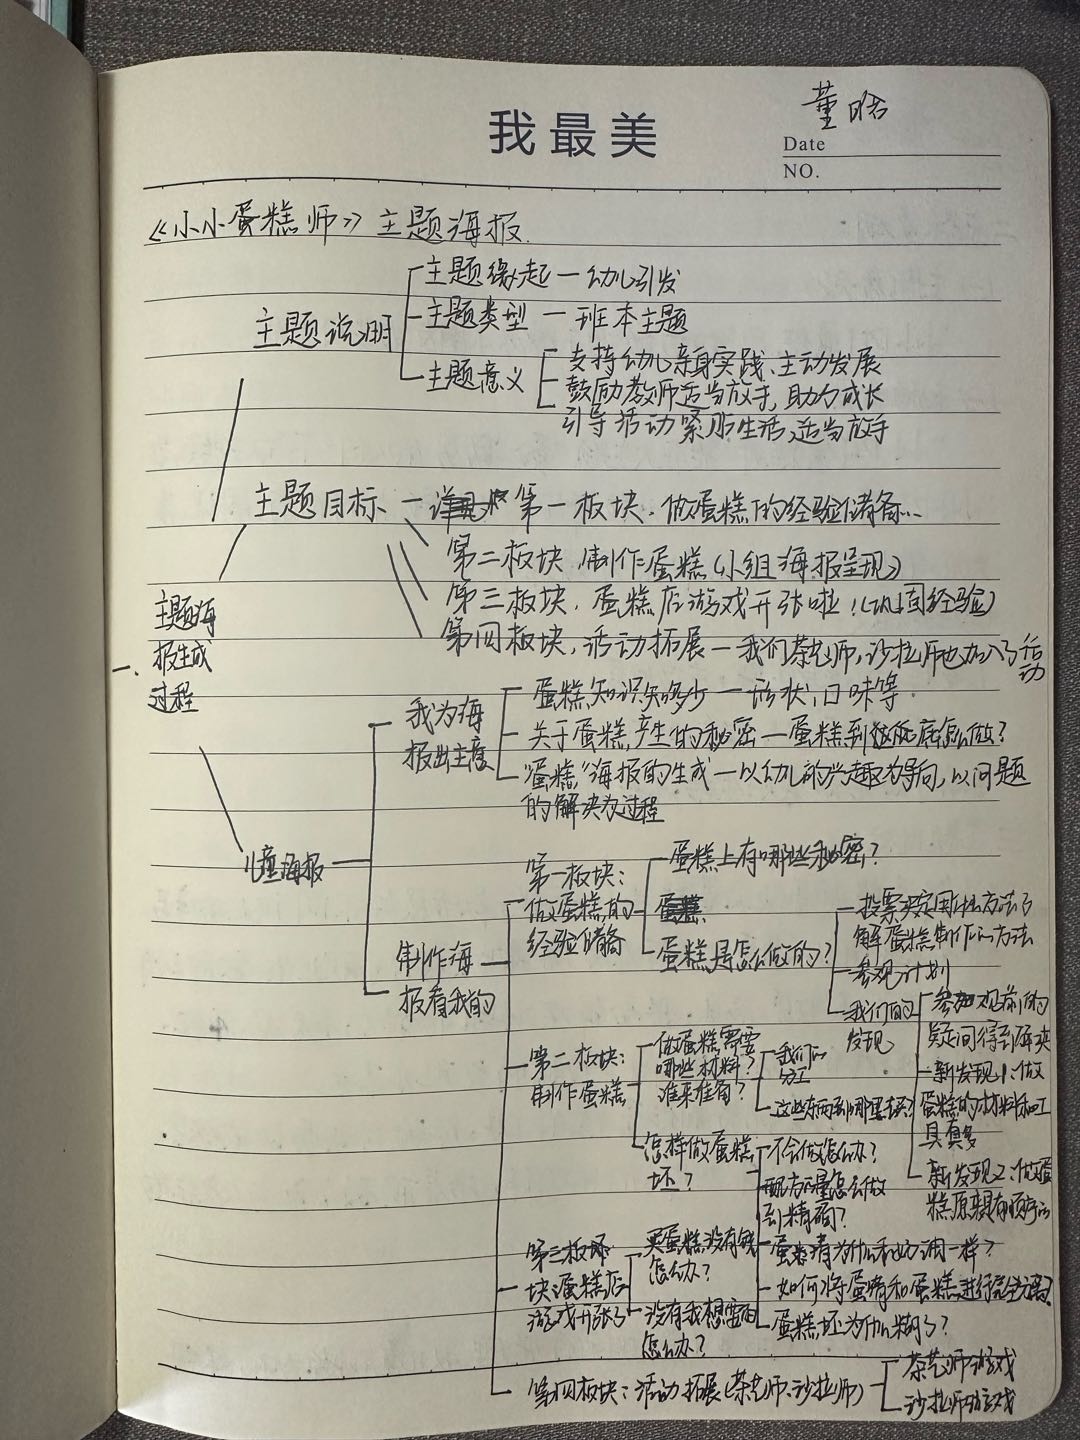 我最美
董晗
Date
NO.
《小小蛋糕师》主题海报.
主题说明
主题缘起一幼儿引发
主题类型 一 班本主题
主题意义
支持幼儿亲身实践、主动发展
鼓励教师适当放手,助力成长
引导活动紧贴生活,适当放手
主题目标 一
第一板块.做蛋糕的经验储备...
第二板块.制作蛋糕(小组海报呈现)
第三板块.蛋糕店游戏开张啦!(巩固经验)
第四板块,活动拓展一我们茶艺师,沙拉师也加入了活动
一、
主题海
报生成
过程
我为海
报出主意
蛋糕知识知多少一形状,口味等.
关于蛋糕产生的秘密一蛋糕到底怎么做?
"蛋糕"海报的生成一以幼儿的兴趣为导向,以问题
的解决为过程
儿童海报
制作海
报看我的
第一板块:
做蛋糕的
经验储备
蛋糕上有哪些秘密?
蛋糕
蛋糕是怎么做的?
投票决定用什么方法了
解蛋糕制作的方法
参观计划
我们的
发现
参观前的
疑问得到解决
新发现1:做
蛋糕的材料和工
具真多
新发现2:做蛋
糕原来有顺序的
第二板块:
制作蛋糕
做蛋糕需要
哪些材料?
谁来准备?
我们的
分工
这些东西到哪里去买?
怎样做蛋糕
坯?
不会做怎么办?
配方的量怎么做
到精确?
蛋清为什么和奶油一样?
如何将蛋清和蛋糕进行完全分离?
蛋糕坯为什么糊了?
第三板
块:蛋糕店
游戏开张了
买蛋糕没有钱
怎么办?
没有我想要的
怎么办?
第四板块:活动拓展(茶艺师、沙拉师)
茶艺师游戏
沙拉师游戏